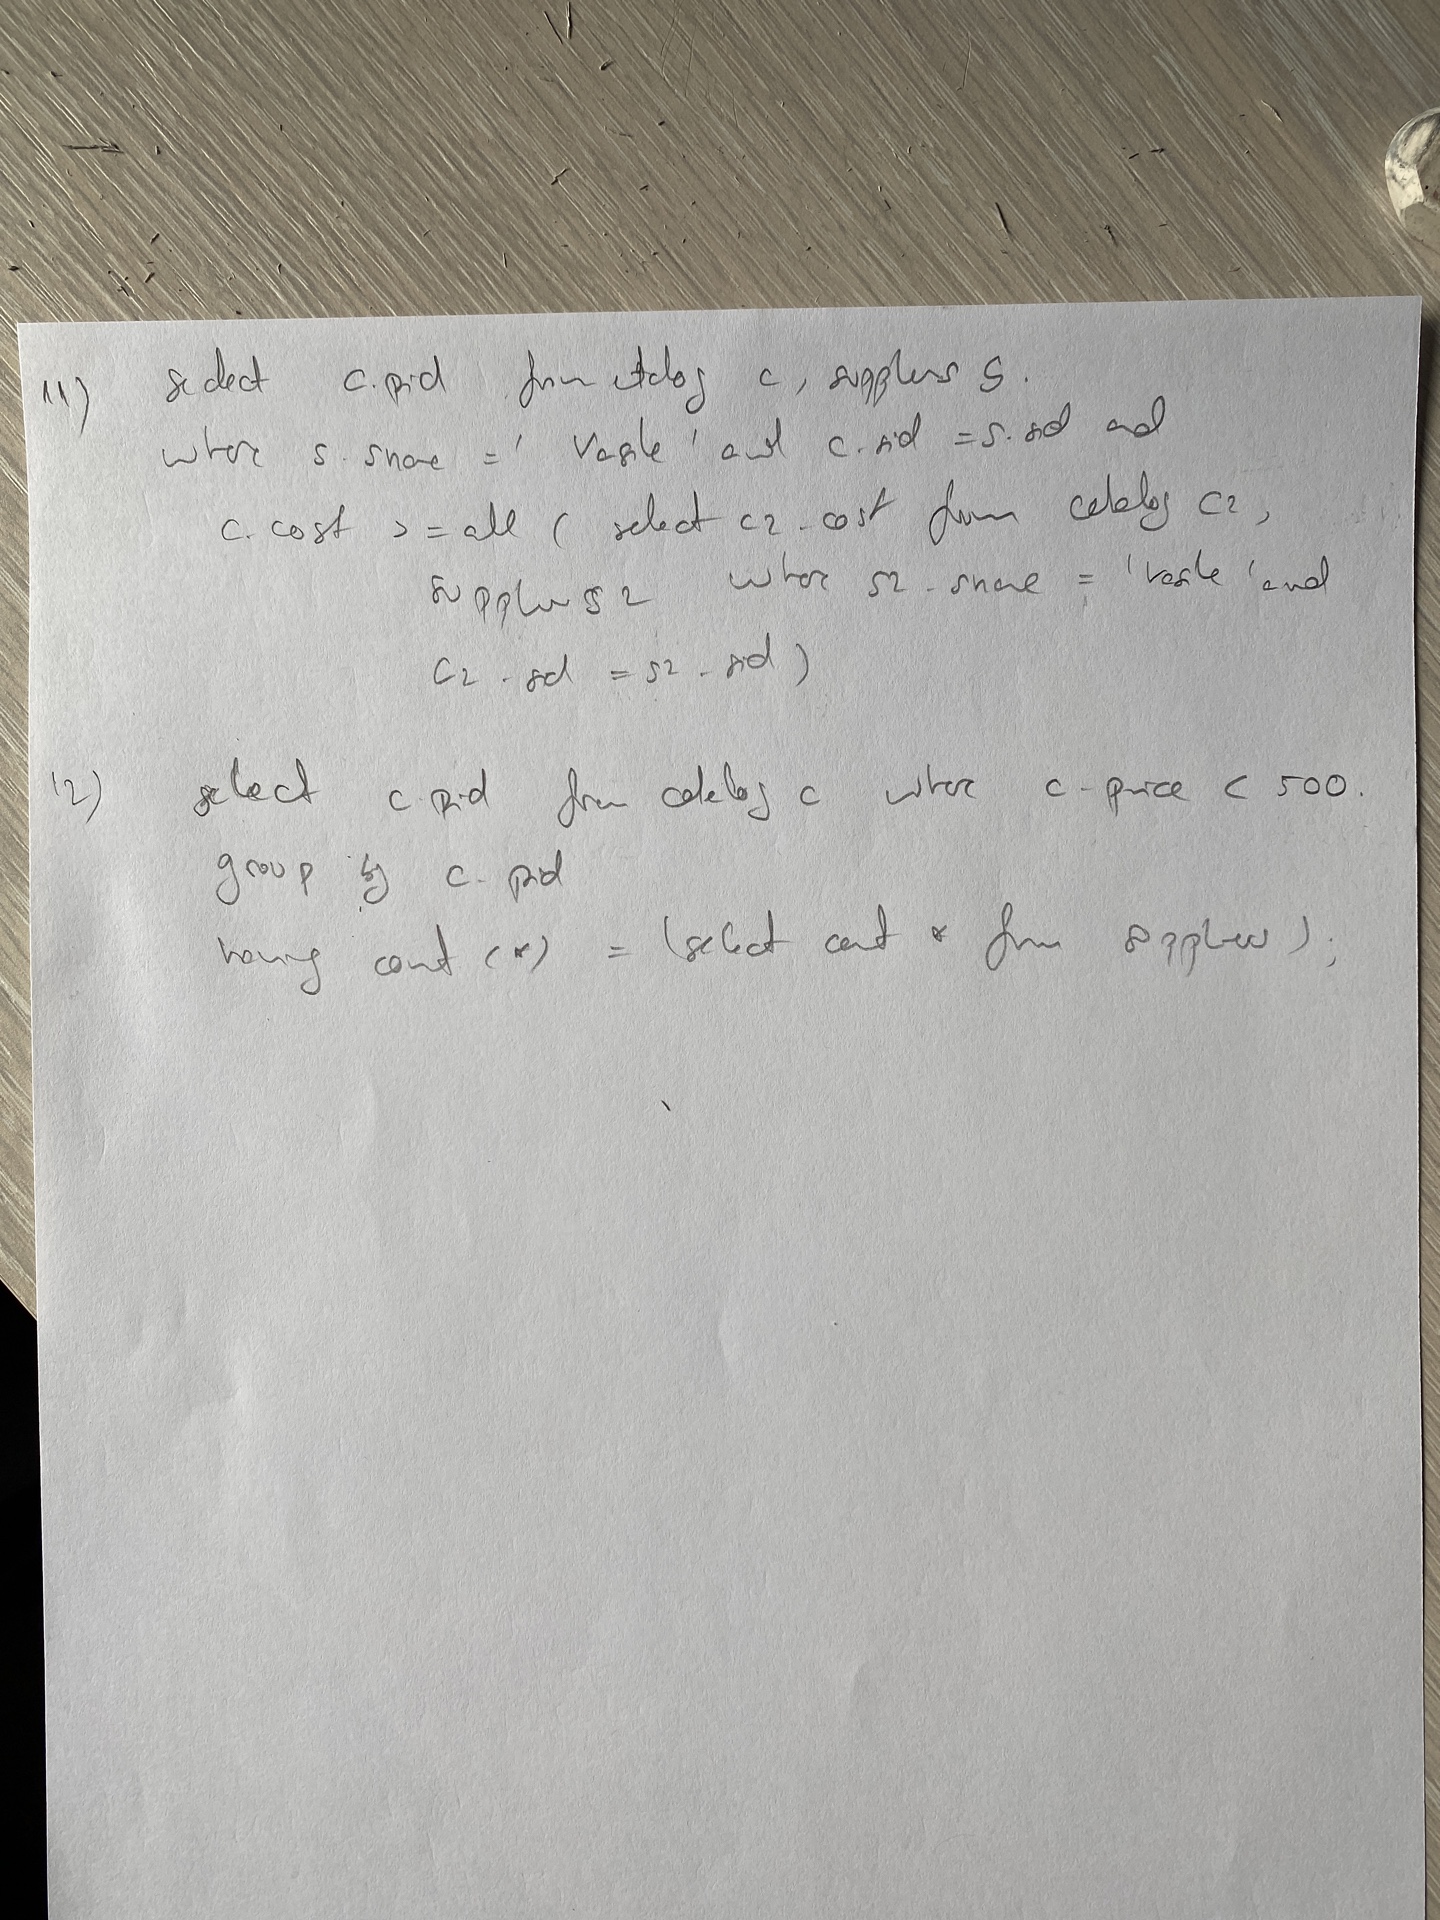 11) select c.pid from catalog c, suppliers S.
where s.sname = 'Vasile' and c.sid = s.sid and
c.cost >= all ( select c2.cost from catalog c2,
suppliers s2 where s2.sname = 'Vasile' and
c2.sid = s2.sid )
12) select c.pid from catalog c where c.price < 500.
group by c.pid
having count (*) = (select count * from suppliers );